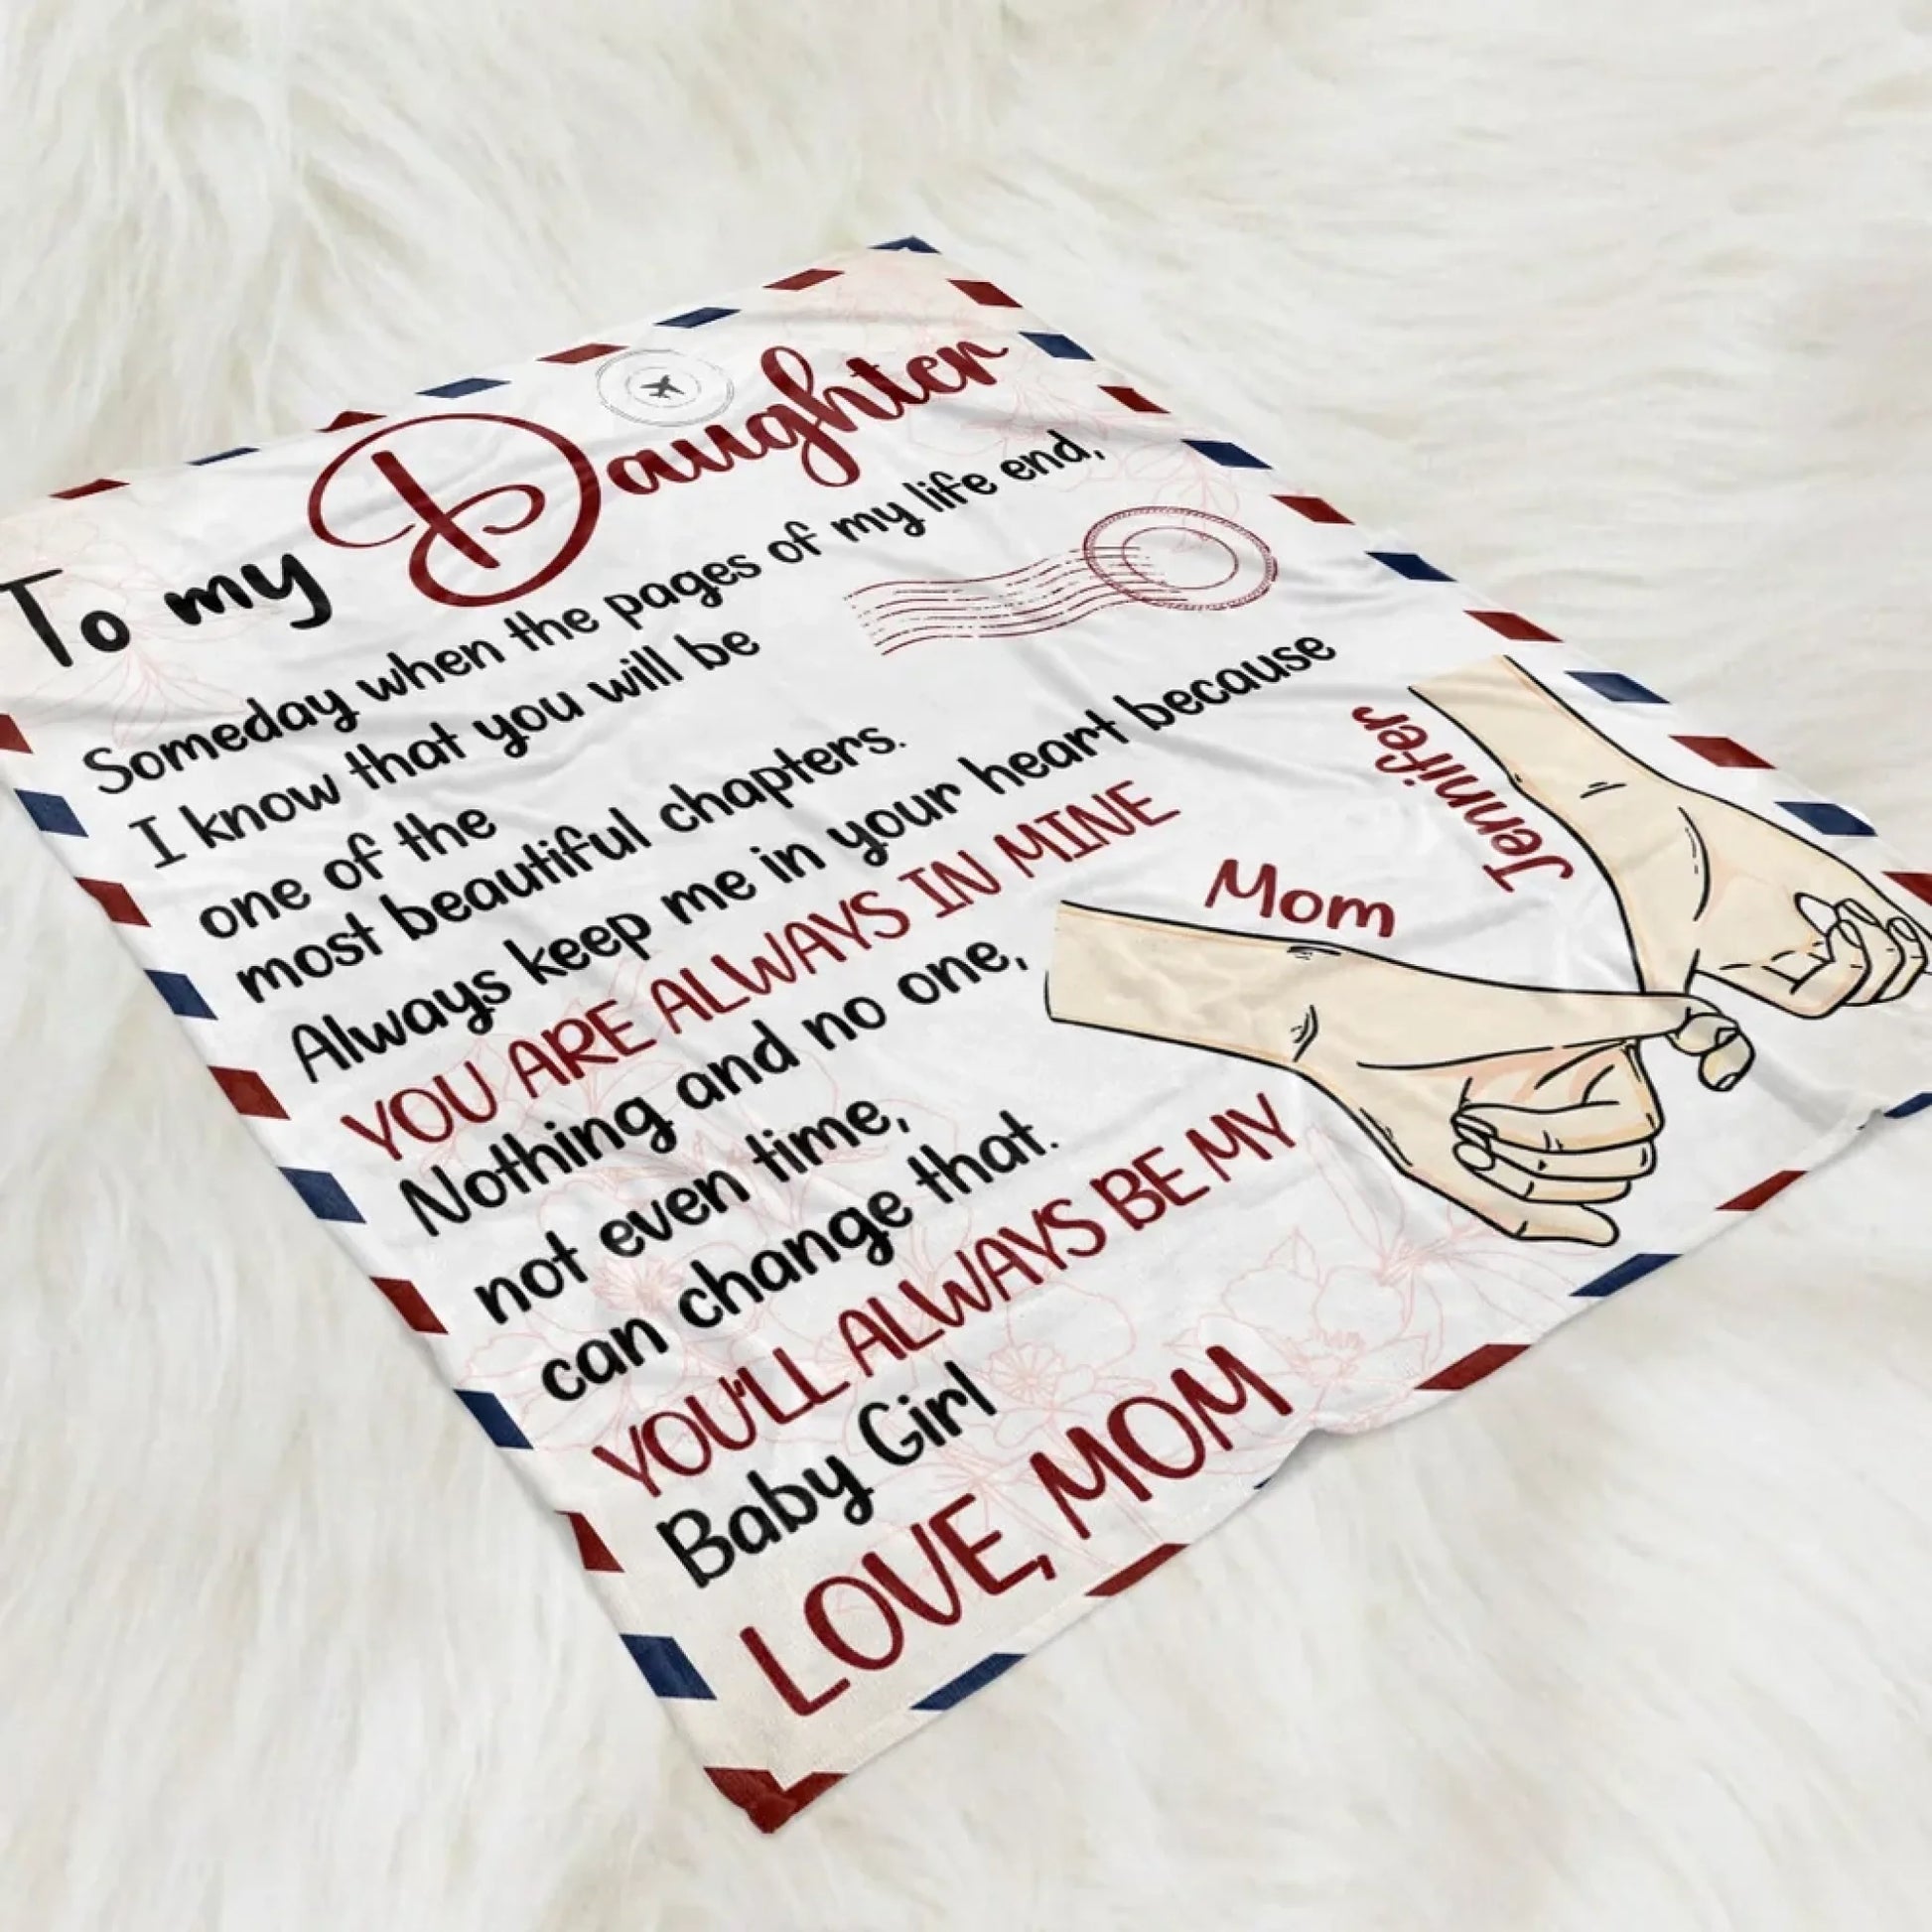 To my Daughter
Someday when the pages of my life end,
I know that you will be
one of the
most beautiful chapters.
Always keep me in your heart because
YOU ARE ALWAYS IN MINE
Nothing and no one,
not even time,
can change that.
YOU'LL ALWAYS BE MY
Baby Girl
LOVE, MOM
Jennifer
Mom